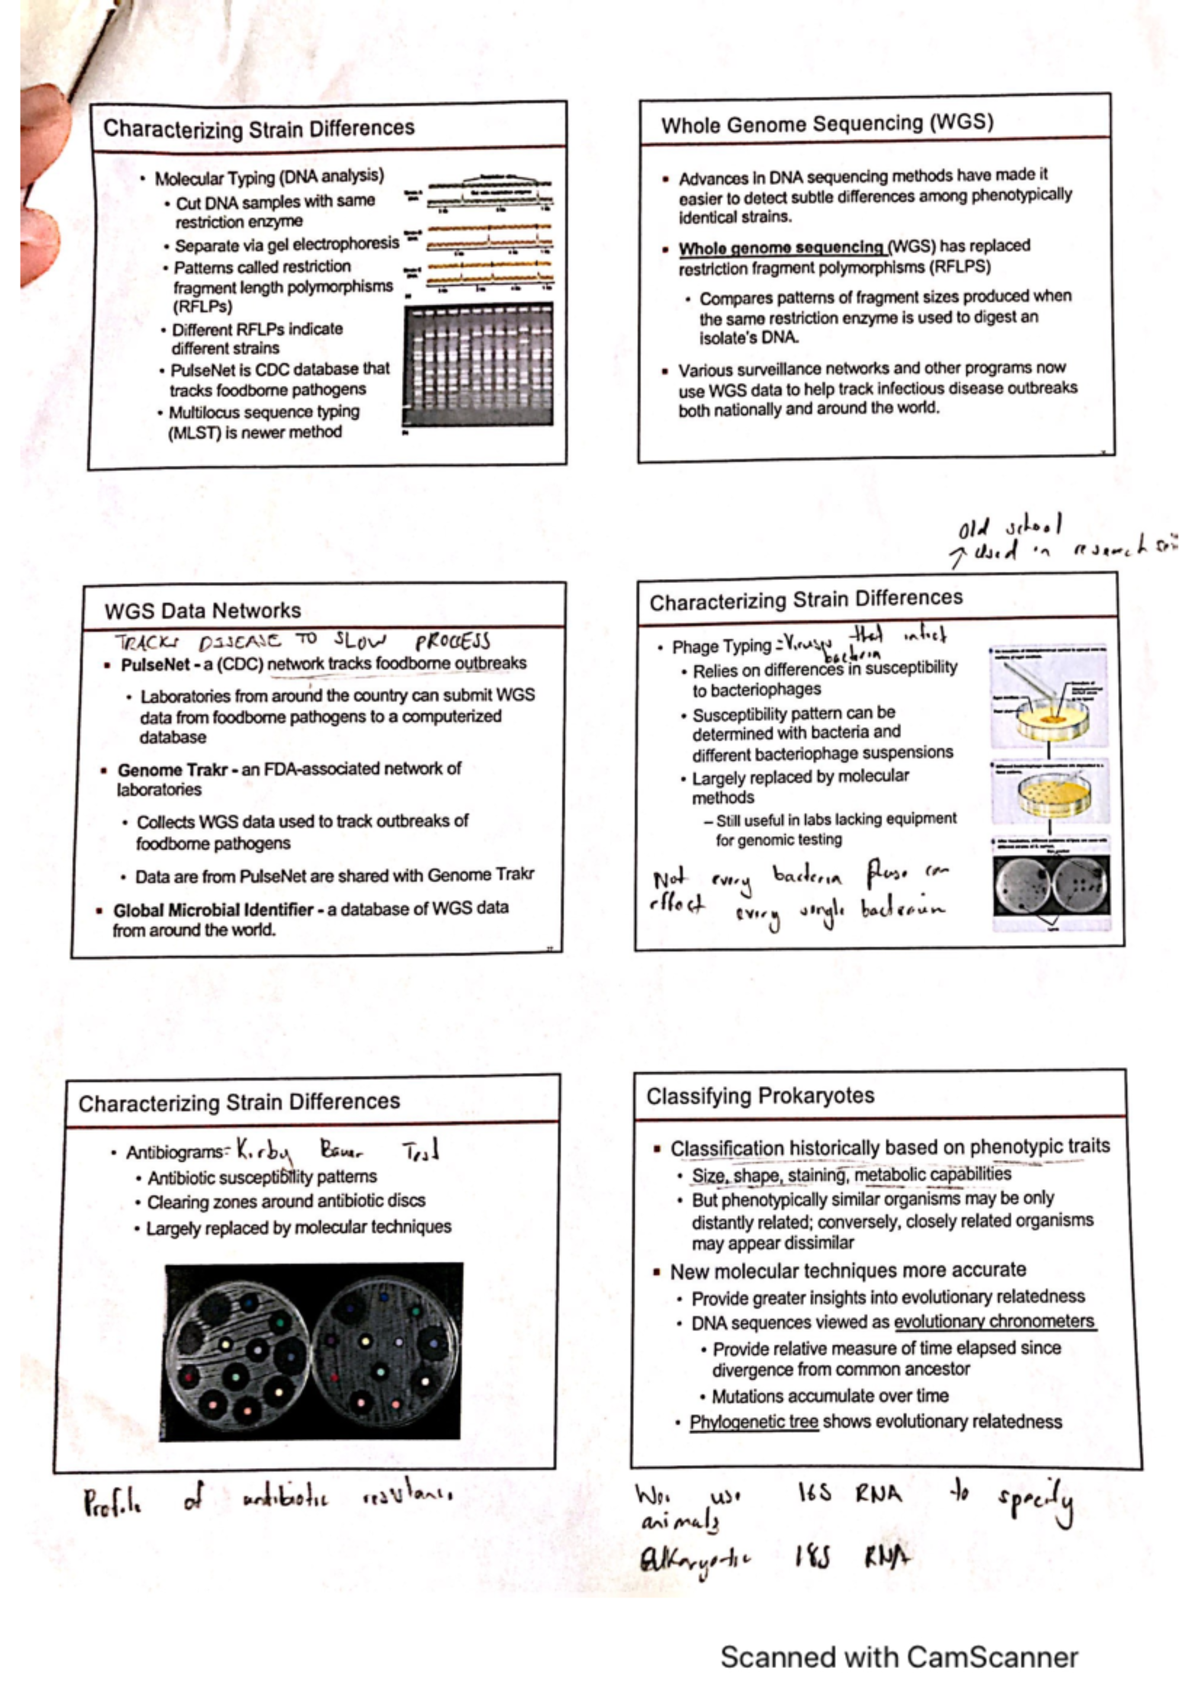 Characterizing Strain Differences
• Molecular Typing (DNA analysis)
• Cut DNA samples with same
restriction enzyme
• Separate via gel electrophoresis
• Patterns called restriction
fragment length polymorphisms
(RFLPs)
• Different RFLPs indicate
different strains
• PulseNet is CDC database that
tracks foodborne pathogens
• Multilocus sequence typing
(MLST) is newer method
Whole Genome Sequencing (WGS)
▪ Advances in DNA sequencing methods have made it
easier to detect subtle differences among phenotypically
identical strains.
▪ Whole genome sequencing (WGS) has replaced
restriction fragment polymorphisms (RFLPS)
• Compares patterns of fragment sizes produced when
the same restriction enzyme is used to digest an
isolate's DNA.
▪ Various surveillance networks and other programs now
use WGS data to help track infectious disease outbreaks
both nationally and around the world.
WGS Data Networks
TRACKS DISEASE TO SLOW PROCESS
▪ PulseNet - a (CDC) network tracks foodborne outbreaks
• Laboratories from around the country can submit WGS
data from foodborne pathogens to a computerized
database
▪ Genome Trakr - an FDA-associated network of
laboratories
• Collects WGS data used to track outbreaks of
foodborne pathogens
• Data are from PulseNet are shared with Genome Trakr
▪ Global Microbial Identifier - a database of WGS data
from around the world.
Old school
↑ Used in research
Characterizing Strain Differences
• Phage Typing = Viruses that infect
bacteria
• Relies on differences in susceptibility
to bacteriophages
• Susceptibility pattern can be
determined with bacteria and
different bacteriophage suspensions
• Largely replaced by molecular
methods
– Still useful in labs lacking equipment
for genomic testing
Not every bacteria can
effect every single bacterium
Characterizing Strain Differences
• Antibiograms = Kirby Bauer Test
• Antibiotic susceptibility patterns
• Clearing zones around antibiotic discs
• Largely replaced by molecular techniques
Profile of antibiotic resistance
Classifying Prokaryotes
▪ Classification historically based on phenotypic traits
• Size, shape, staining, metabolic capabilities
• But phenotypically similar organisms may be only
distantly related; conversely, closely related organisms
may appear dissimilar
▪ New molecular techniques more accurate
• Provide greater insights into evolutionary relatedness
• DNA sequences viewed as evolutionary chronometers
• Provide relative measure of time elapsed since
divergence from common ancestor
• Mutations accumulate over time
• Phylogenetic tree shows evolutionary relatedness
use 16S RNA to specify
animals
Eukaryotic 18S RNA
Scanned with CamScanner